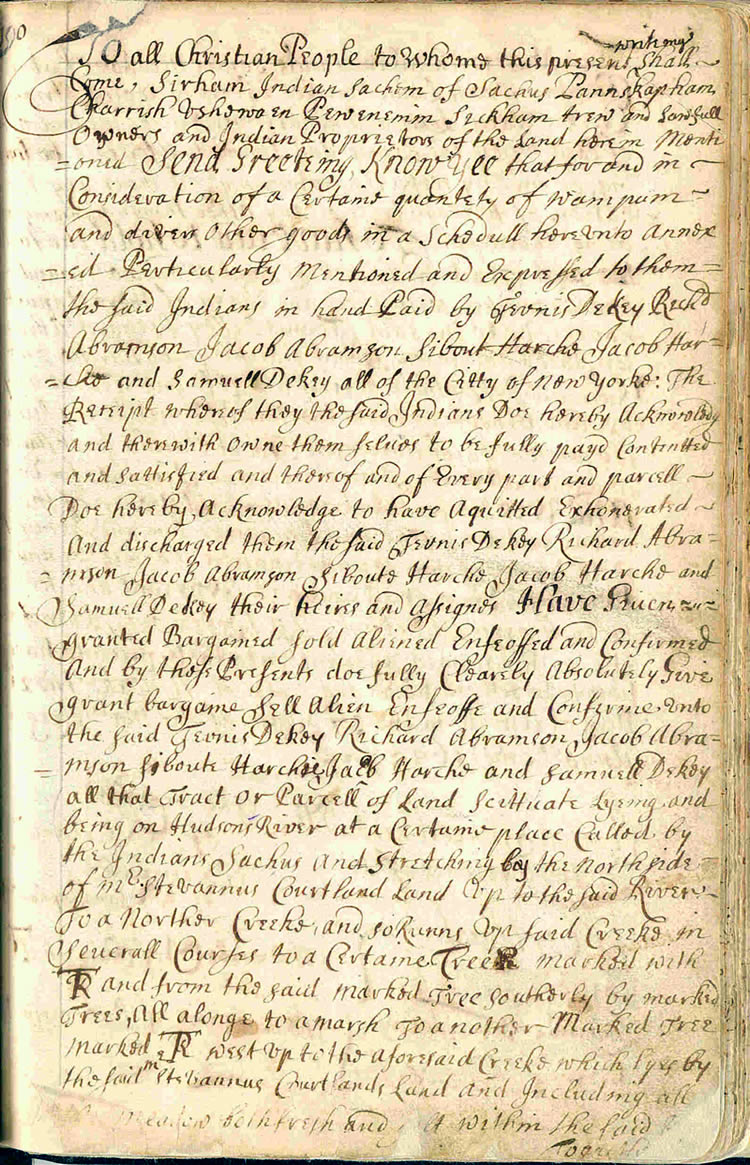 190
writing
To all Christian People to whome this present shall
Come, Sirham Indian Sachem of Sachus Pannskapham
Charrish Vshewaen Pewenemin Sickham trew and Lawfull
Owners and Indian Proprietors of the Land herein Menti
=oned Send Greeteing Know Yee that for and in
Consideration of a Certaine quantety of wampum
and divers Other goods in a Schedull hereunto Annex
=ed Perticularly Mentioned and Expressed to them=
the said Indians in hand Paid by Tevnis DeKey Richd
Abramson Jacob Abramson Sibout Harche Jacob Har=
=che and Samuell Dekey all of the Citty of New Yorke: The
Receipt whereof they the said Indians Doe hereby Acknowledg
and therewith owne them selves to be fully payd Contentted
and sattisfied and thereof and of Every part and parcell
Doe hereby Acknowledge to have Aquitted Exhonerated
And discharged them the said Tevnis DeKey Richard Abra=
=mson Jacob Abramson Siboute Harche Jacob Harche and
Samuell Dekey their heires and Assignes Have Given
granted Bargained sold Aliened Enfeoffed and Confirmed
And by these Presents doe fully Clearely Absolutely Give
grant bargaine Sell Alien Enfeoffe and Confirme unto
the said Tevnis DeKey Richard Abramson Jacob Abra=
=mson Siboute Harche Jacob Harche and Samuell DeKey
all that Tract or Parcell of Land Scittuate Lyeing and
being on Hudsons River at a Certaine place Called by
the Indians Sachus And Stretching by the North side
of mr Stevannus Courtland Land Up to the said River
To a Norther Creeke, and so Runns Up said Creeke in
Severall Courses to a Certaine Tree marked with
TR and from the said marked Tree Southerly by marked
Trees, All alonge to a marsh To another Marked Tree
marked TR west Up to the aforesaid Creeke which lyes by
the said mr Stevannus Courtlands Land and Including all
meadow both fresh and within the said